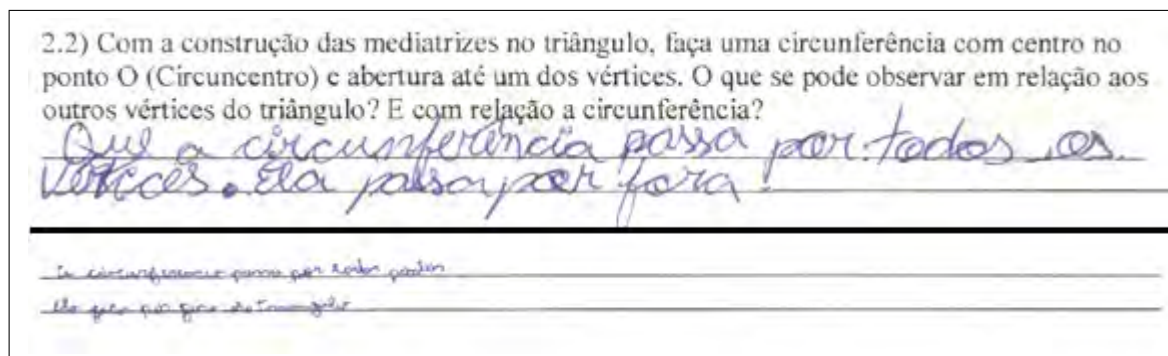 2.2) Com a construção das mediatrizes no triângulo, faça uma circunferência com centro no
ponto O (Circuncentro) e abertura até um dos vértices. O que se pode observar em relação aos
outros vértices do triângulo? E com relação a circunferência?
Que a circunferência passa por todos os
vértices. Ela passa por fora.
circunferencia passa por todos pontos
Ela por fora do